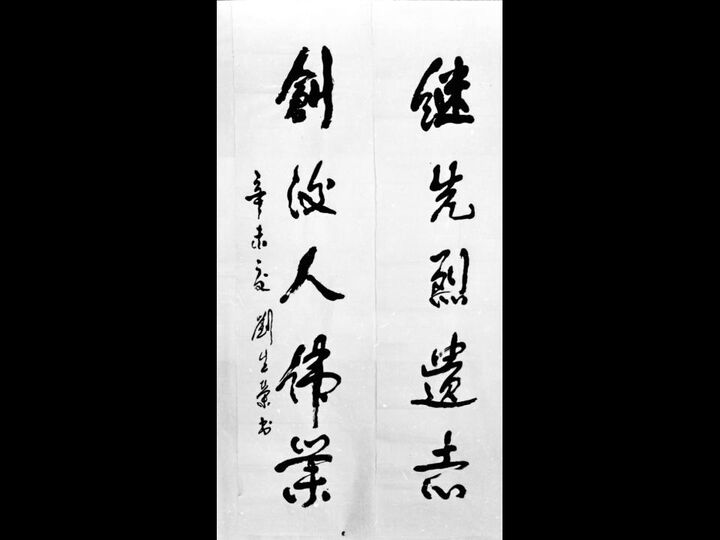 继先烈遗志
創後人偉業
辛未夏劉生榮书